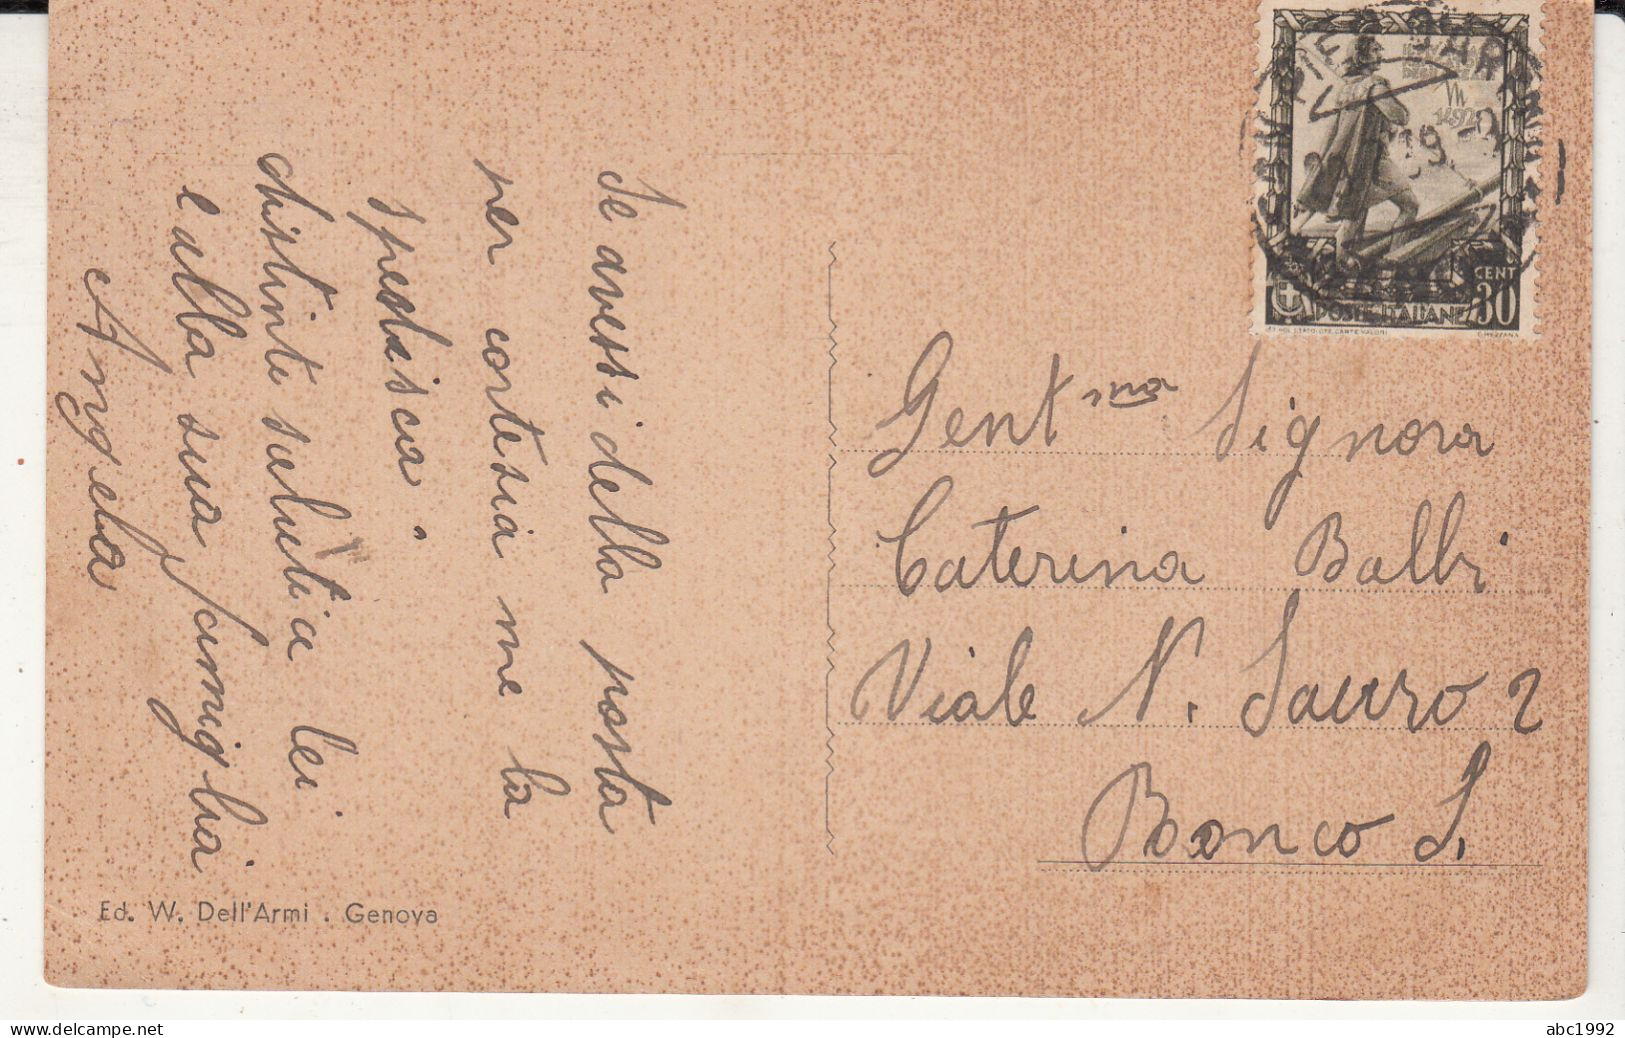 Se avessi della posta
per cortesia me la
spedisca.
distinti saluti a lei
e alla sua famiglia
Angela
Ed. W. Dell'Armi . Genova
Gent ma Signora
Caterina Balbi
Viale N. Sauro 2
Bonco S.
1492
CENT 30
POSTE ITALIANE
abc1992